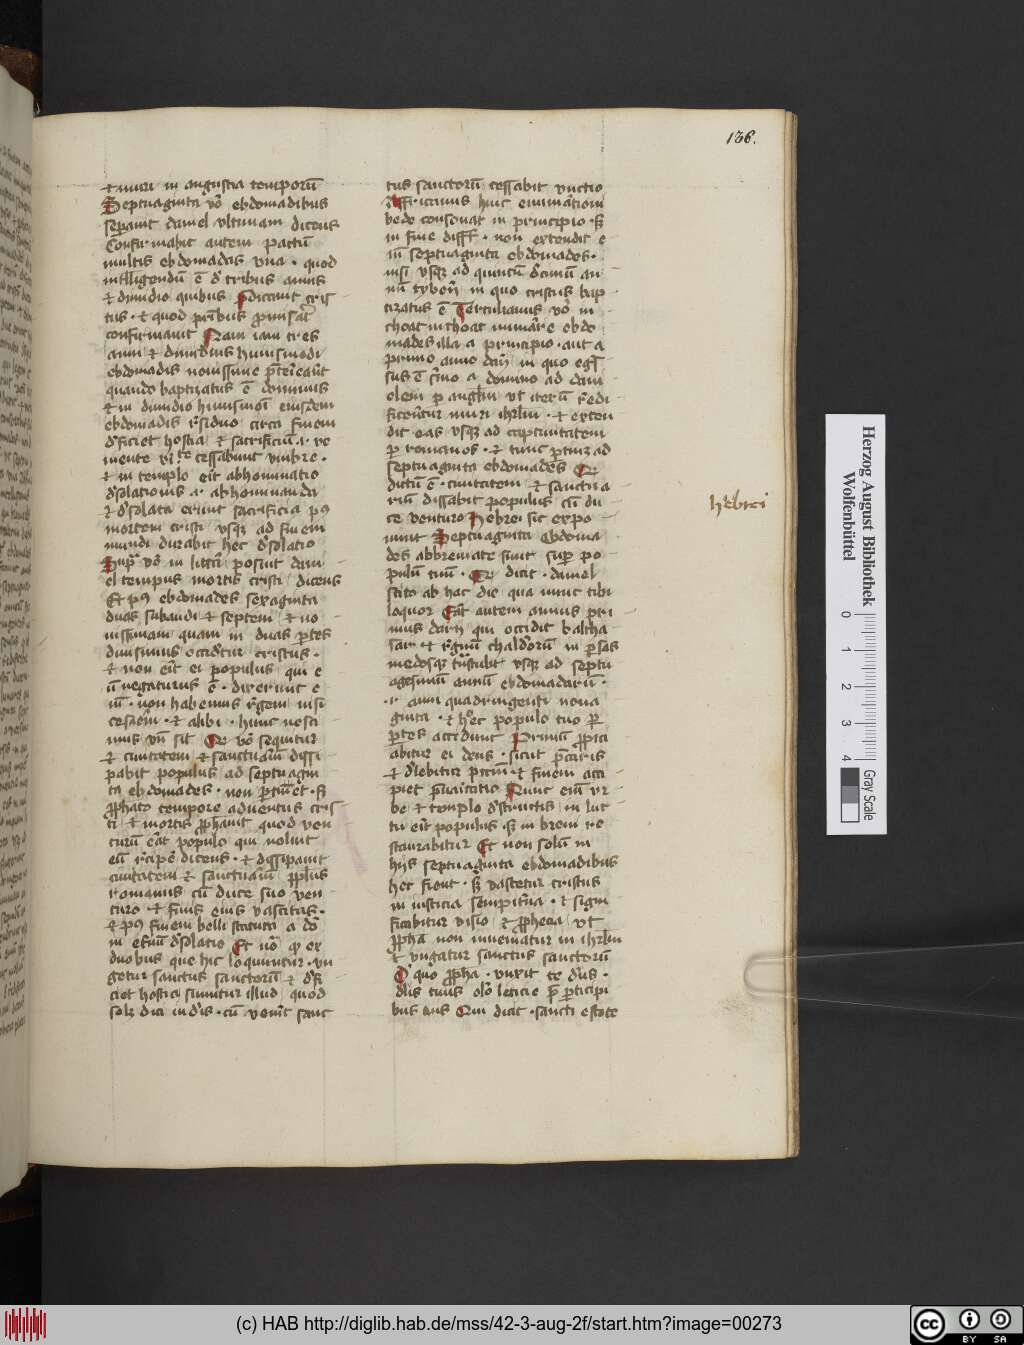 136.
et muri in angustia temporū
Septuaginta vo ebdomadibus
sepauit daniel vltimam dicens
Confirmabit autem pactū
multis ebdomadas vna . quod
intelligendū ē d tribus annis
et dimidio quibus pdicauit cris
tus . et quod pribus
confirmauit Nam iam tres
anni et dimidius huiusmodi
ebdomadis nouissime
quando baptizatus ē dominus
et in dimidio huiusmoi eiusdem
ebdomadis residuo circa finem
dficiet hostia et sacrificiū .i. ve
mente cessabunt vmbre .
et in templo eit abhominatio
dsolationis .i. abhominanda
et dsolata erunt sacrificia p9
mortem cristi vsqz ad finem
mundi durabit hec dsolatio
Supra vo in littera posuit dani
el tempus mortis cristi dicens
Et p9 ebdomades sexaginta
duas subaudi et septem et no
uissimam quam in duas ptes
diuisimus occidetur cristus .
et non eit ei populus qui e
ū negaturus ē . dixerunt e
nī . non habemus regem nisi
cesarem . et alibi . hunc nesci
mus vn sit vo sequitur
et ciuitatem et sanctuariū dissi
pabit populus ad septuagin
ta ebdomades . non ptinet . sz
pphato tempore aduentus cris
ti et mortis pphauit quod ven
turū eāt populo qui noluit
eū recipe dicens . et dissipauit
ciuitatem et sanctuariū pplus
romanus cū duce suo ven
turo et finis eius vastitas .
et p9 finem belli statuta a do
in etnū dsolatio Et no qd ex
duobus que hic loquuntur . vn
getur sanctus sanctorū et dfi
ciet hostia sumitur illud quod
solz dici iudis . cū venit sanc
tus sanctorū cessabit vnctio
Affricanus huic enumationi
bede consonat in principio . sz
in fine diff . non extendit e
nī septuaginta ebdomades .
nisi vsqz ad quintū dcimū an
nū tyberii in quo cristus bap
tizatus ē Tertulianus vo in
choat inchoat numare ebdo
mades illa a principio . aut a
primo anno darii in quo egs
sus ē smo a domino ad dani
elem p anglm vt iterū redi
ficentur muri ihrlm . et exten
dit eas vsqz ad captiuitatem
p romanos . et tunc ptinz ad
septuaginta ebdomades
dictū ē . ciuitatem et sanctua
riū dissipabit populus cū du
ce venturo Hebrei sic expo
nunt Septuaginta Ebdoma
des abbreuiate sunt sup po
pulū tuū . dicit . daniel
scito ab hac die qua nunc tibi
loquor Eāt autem annus pri
mus darii qui occidit baltha
sar . et regnū chaldeorū in psas
medosqz transtulit vsqz ad septu
agesimū annū ebdomadarū .
.i. anni quadringenti nona
ginta . et hec populo tuo p
ptes accidunt Primū ppici
abitur ei deus . sicut pcaris
et delebitur pctm . et finem acci
piet puaricatio Nunc enī vr
be et templo destructis in luc
tu eit populus . sz in breui re
staurabitur Et non solū in
hijs septuaginta ebdomadibus
hec fient . sz nascetur cristus
in iusticia sempiterna . et signi
ficabitur visio et pphecia vt
ppha non inueniatur in ihrlm
et vngatur sanctus sanctorū
D quo ppha . vnxit te ds .
ds tuus oleo leticie p pticipi
bus tuis Qui dicit . sancti estote
hebrei
Herzog August Bibliothek
Wolfenbüttel
0 1 2 3 4
Gray Scale
(c) HAB http://diglib.hab.de/mss/42-3-aug-2f/start.htm?image=00273
cc BY SA